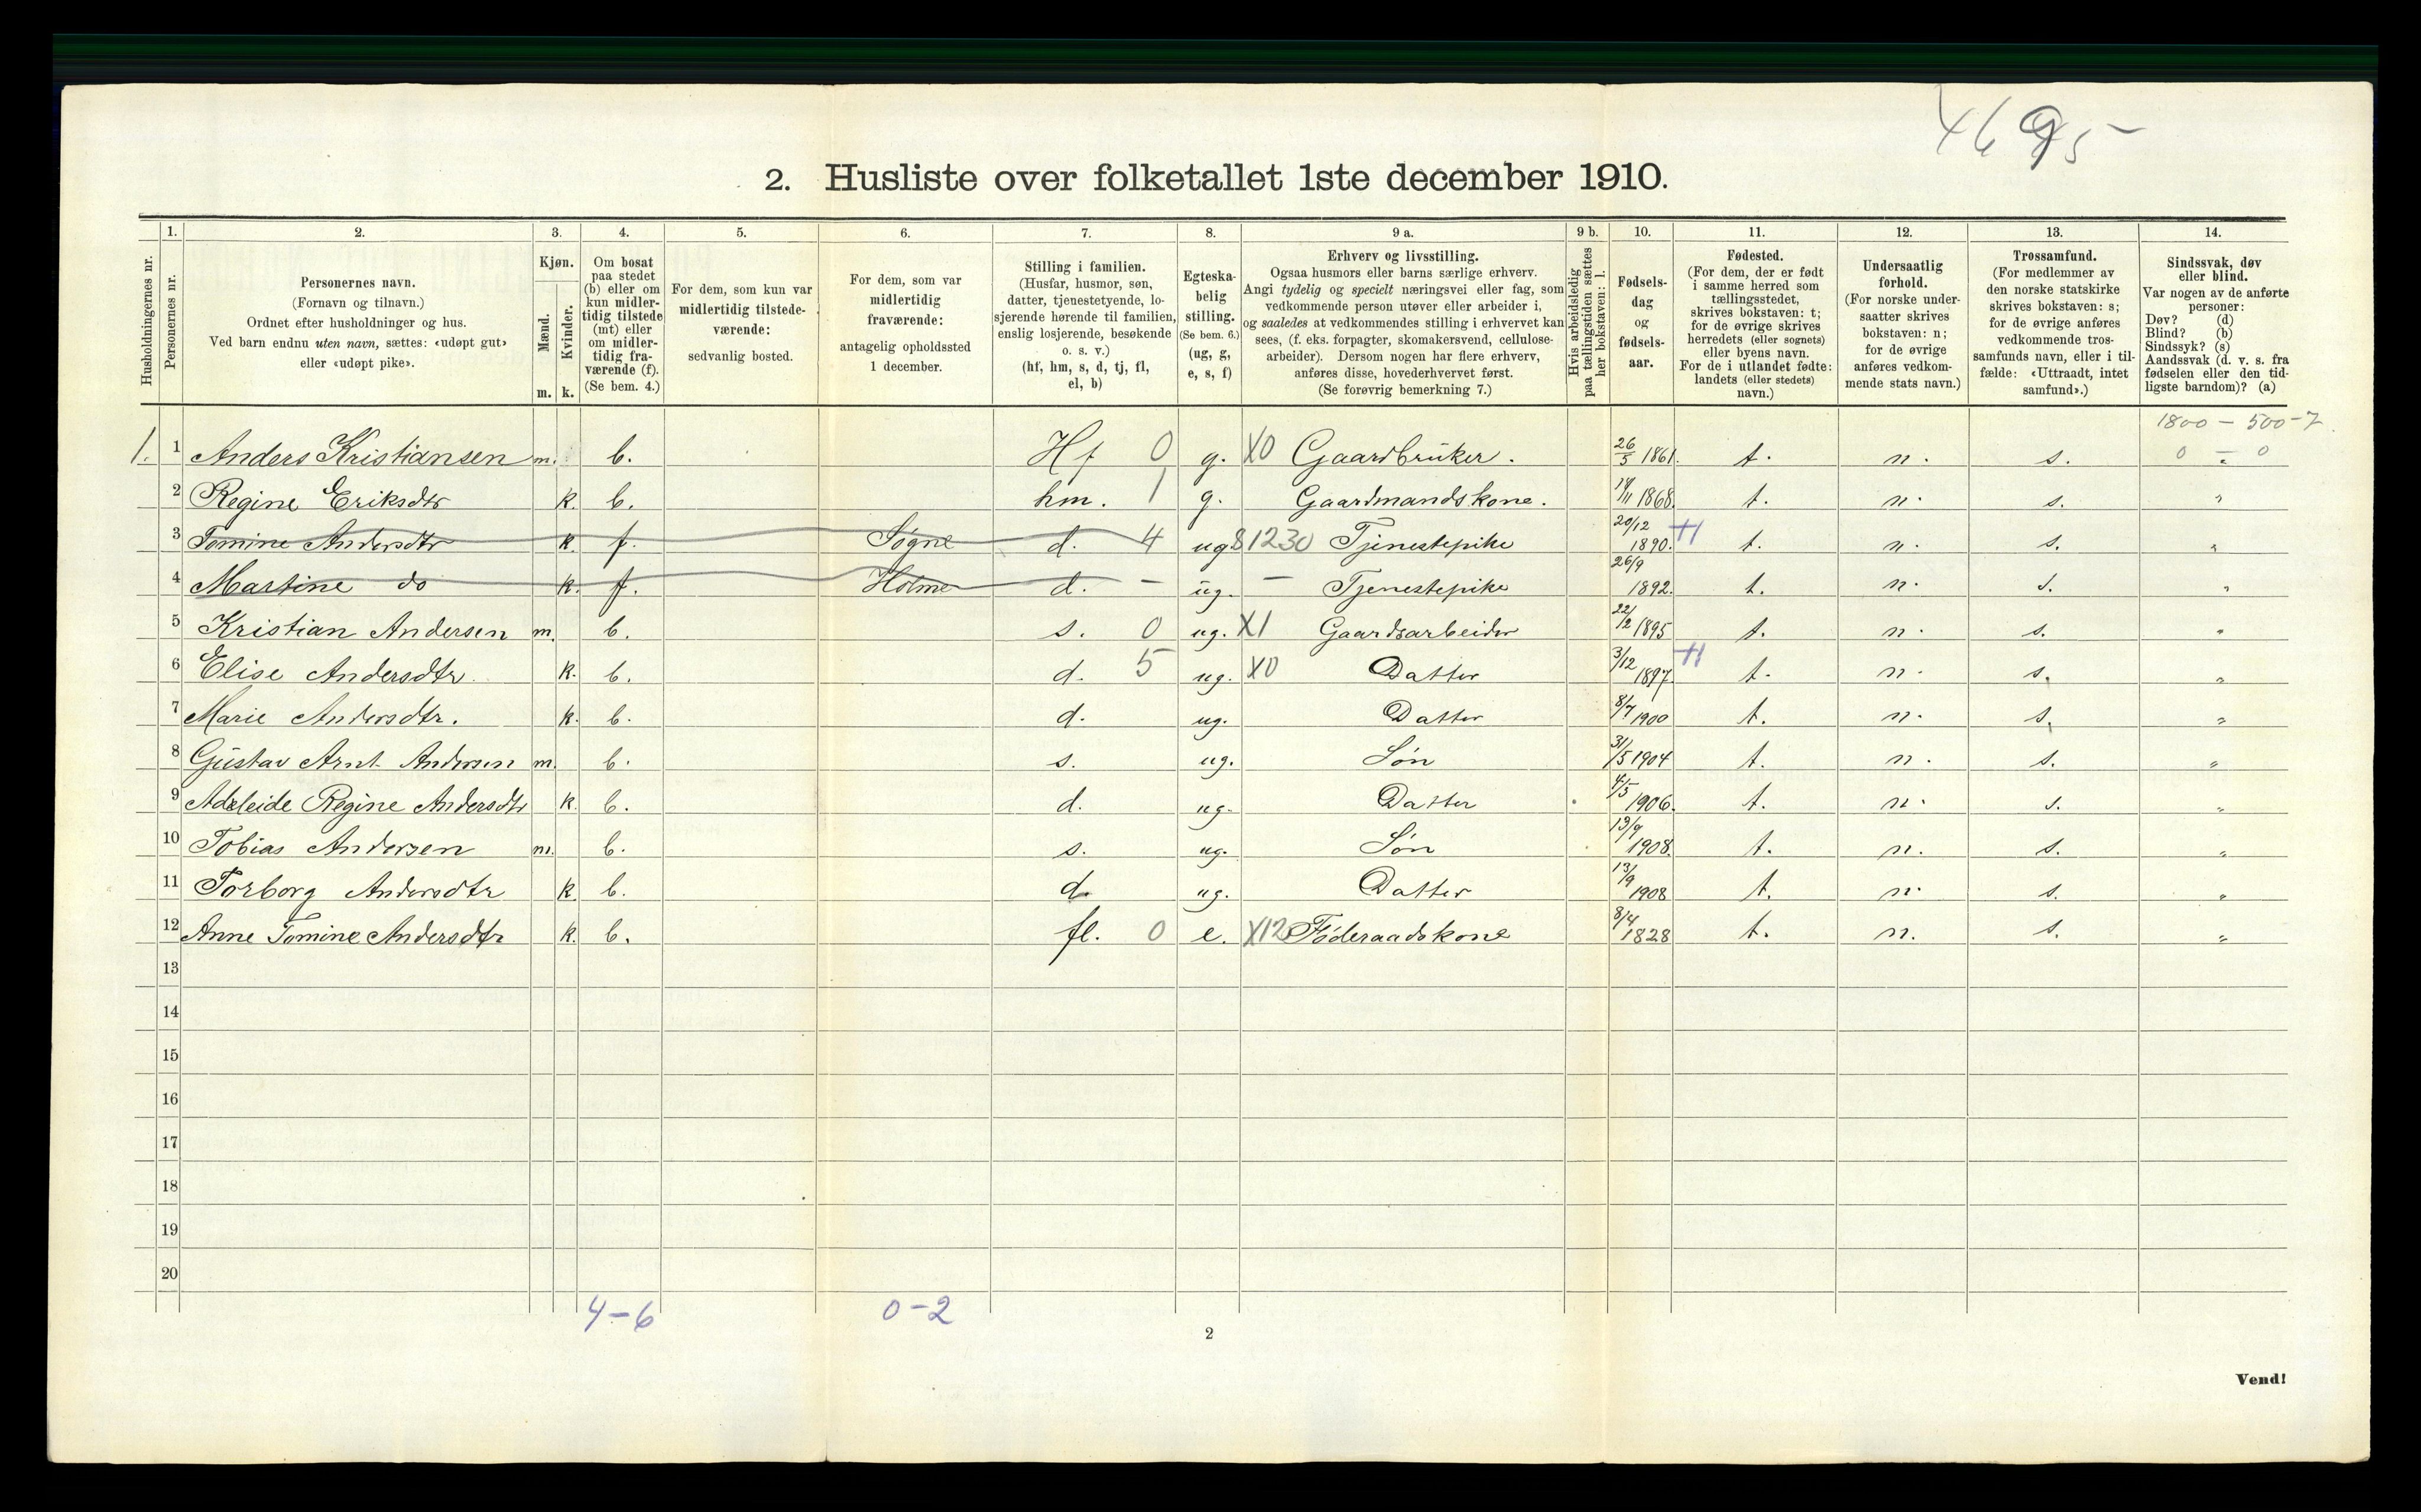 4695-
2. Husliste over folketallet 1ste december 1910.
Husholdningernes nr.
1. Personernes nr.
2. Personernes navn. (Fornavn og tilnavn.) Ordnet efter husholdninger og hus. Ved barn endnu uten navn, sættes: «udøpt gut» eller «udøpt pike».
3. Kjøn. Mænd. m. Kvinder. k.
4. Om bosat paa stedet (b) eller om kun midlertidig tilstede (mt) eller om midlertidig fraværende (f). (Se bem. 4.)
5. For dem, som kun var midlertidig tilstedeværende: sedvanlig bosted.
6. For dem, som var midlertidig fraværende: antagelig opholdssted 1 december.
7. Stilling i familien. (Husfar, husmor, søn, datter, tjenestetyende, losjerende hørende til familien, enslig losjerende, besøkende o. s. v.) (hf, hm, s, d, tj, fl, el, b)
8. Egteskabelig stilling. (Se bem. 6.) (ug, g, e, s, f)
9 a. Erhverv og livsstilling. Ogsaa husmors eller barns særlige erhverv. Angi tydelig og specielt næringsvei eller fag, som vedkommende person utøver eller arbeider i, og saaledes at vedkommendes stilling i erhvervet kan sees, (f. eks. forpagter, skomakersvend, cellulosearbeider). Dersom nogen har flere erhverv, anføres disse, hovederhvervet først. (Se forøvrig bemerkning 7.)
9 b. Hvis arbeidsledig paa tællingstiden sættes her bokstaven: l.
10. Fødselsdag og fødselsaar.
11. Fødested. (For dem, der er født i samme herred som tællingsstedet, skrives bokstaven: t; for de øvrige skrives herredets (eller sognets) eller byens navn. For de i utlandet fødte: landets (eller stedets) navn.)
12. Undersaatlig forhold. (For norske undersaatter skrives bokstaven: n; for de øvrige anføres vedkommende stats navn.)
13. Trossamfund. (For medlemmer av den norske statskirke skrives bokstaven: s; for de øvrige anføres vedkommende trossamfunds navn, eller i tilfælde: «Uttraadt, intet samfund».)
14. Sindssvak, døv eller blind. Var nogen av de anførte personer: Døv? (d) Blind? (b) Sindssyk? (s) Aandssvak (d. v. s. fra fødselen eller den tidligste barndom)? (a)
1800 - 500-7
1. 1 Anders Kristiansen m. b. Hf 0 g. X0 Gaardbrüker. 26/5 1861. t. n. s. 0 - 0
2 Regine Eriksdtr k. b. hm. 1 g. Gaardmandskone. 14/11 1868. t. n. s. "
3 Tomine Andersdtr k. f. Søgne d. 4 ug 81230 Tjenestepike 20/12 1890. t. n. s. "
4 Martine do k. f. Holme d. - ug. - Tjenestepike 26/9 1892. t. n. s. "
5 Kristian Andersen m. b. s. 0 ug. X1 Gaardsarbeider 22/2 1895 t. n. s. "
6 Elise Andersdtr. k. b. d. 5 ug. X0 Datter 3/12 1897 t. n. s. "
7 Marie Andersdtr. k. b. d. ug. Datter 8/7 1900 t. n. s. "
8 Gustav Arnt Andersen m. b. s. ug. Søn 31/5 1904 t. n. s. "
9 Adeleide Regine Andersdtr k. b. d. ug. Datter 4/5 1906. t. n. s. "
10 Tobias Andersen m. b. s. ug. Søn 13/9 1908. t. n. s. "
11 Torborg Andersdtr k. b. d. ug. Datter 13/9 1908 t. n. s. "
12 Anne Tomine Andersdtr k. b. fl. 0 e. X12 Föderaadskone 8/4 1828 t. n. s. "
13
14
15
16
17
18
19
20
4-6 0-2
2
Vend!